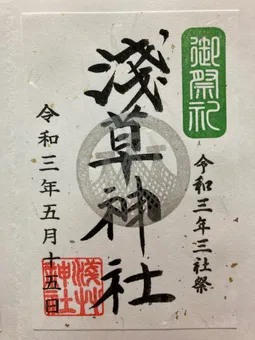 御祭礼
令和三年三社祭
淺草神社
令和三年五月十五日
淺草
神社